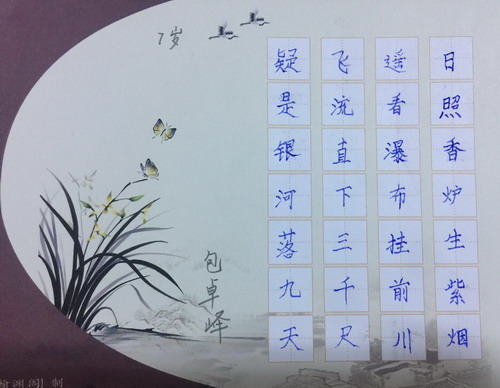 日照香炉生紫烟
遥看瀑布挂前川
飞流直下三千尺
疑是银河落九天
7岁
包卓峰